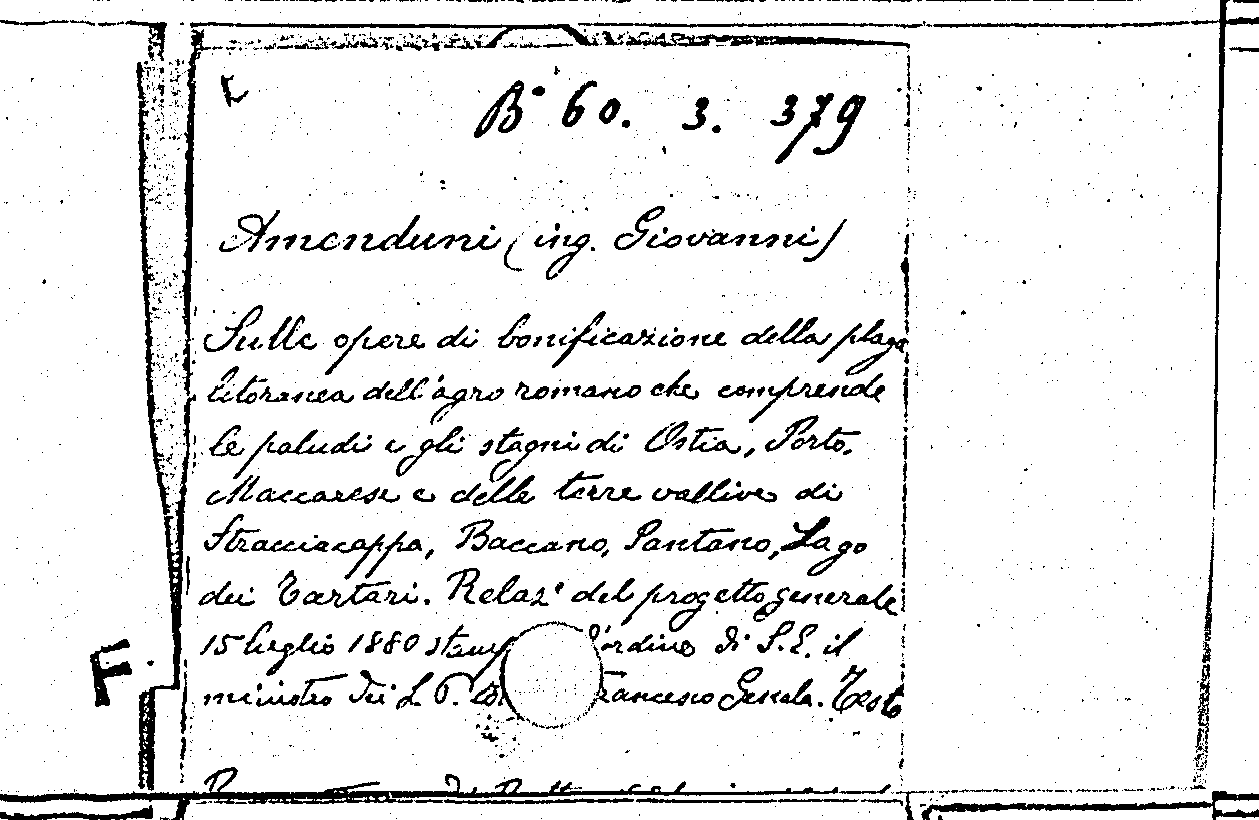 F
B° 60. 3. 379
Amenduni (ing. Giovanni)
Sulle opere di bonificazione della plaga
litoranea dell'agro romano che comprende
le paludi e gli stagni di Ostia, Porto.
Maccarese e delle terre vallive di
Stracciacappa, Baccano, Pantano, Lago
dei Tartari. Relaz° del progetto generale
15 luglio 1880 stamp l'ordine di S. E. il
F
ministro dei L. P. rancesco Genala. Testo